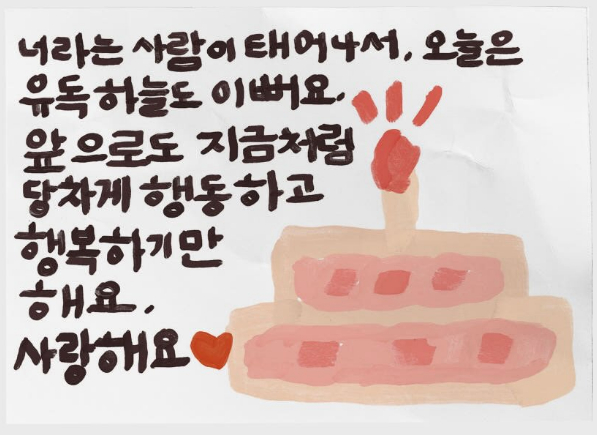 너라는 사람이 태어나서, 오늘은
유독 하늘도 이뻐요.
앞으로도 지금처럼
당차게 행동하고
행복하기만
해요.
사랑해요